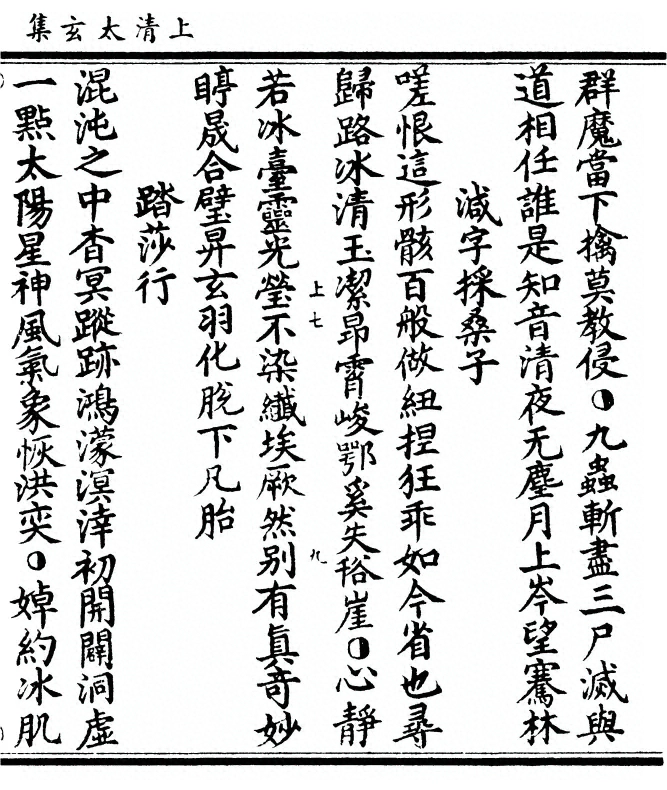 上清太玄集
群魔當下擒莫教侵○九蟲斬盡三尸滅與
道相任誰是知音清夜无塵月上岑望騫林
減字採桑子
嗟恨這形骸百般做紐捏狂乖如今省也尋
歸路冰清玉潔昂霄峻鄂奚失裕崖○心靜
若冰臺靈光瑩不染纖埃厥然別有真奇妙
聤晟合璧昇玄羽化脫下凡胎
踏莎行
混沌之中杳冥蹤跡鴻濛溟涬初開闢洞虛
一點太陽星神風氣象恢洪奕○婥約冰肌
上七
九